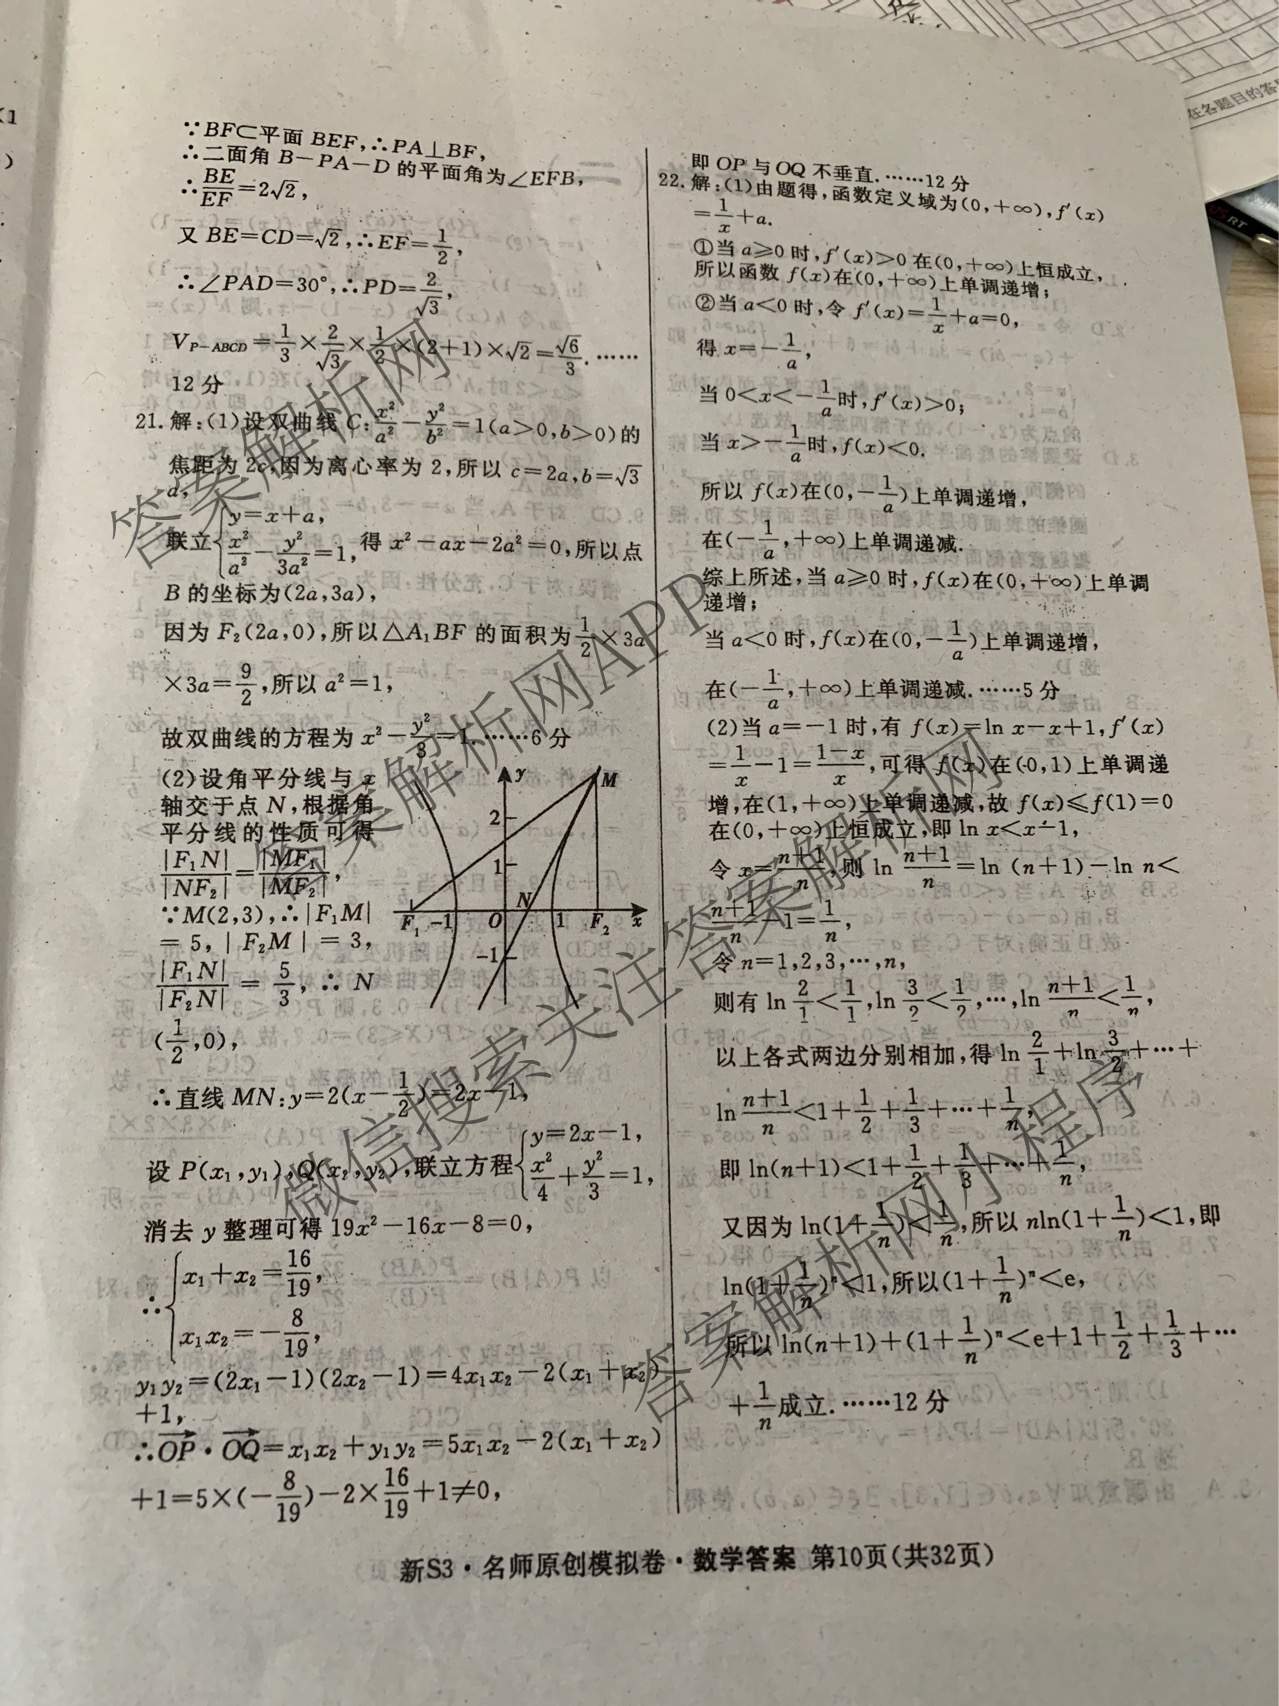 ∵BF⊂平面 BEF,∴PA⊥BF,
∴二面角 B-PA-D 的平面角为∠EFB,
∴BE/EF=2√2,
又 BE=CD=√2,∴EF=1/2,
∴∠PAD=30°,∴PD=2/√3,
V_{P-ABCD}=1/3×2/√3×1/2×(2+1)×√2=√6/3.……
12分
21.解:(1)设双曲线 C:x²/a²-y²/b²=1(a>0,b>0)的
焦距为 2c,因为离心率为 2,所以 c=2a,b=√3
a,
联立{y=x+a, x²/a²-y²/3a²=1, 得 x²-ax-2a²=0,所以点
B 的坐标为(2a,3a),
因为 F₂(2a,0),所以△A₁BF 的面积为1/2×3a
×3a=9/2,所以 a²=1,
故双曲线的方程为 x²-y²/3=1.……6分
(2)设角平分线与 x
轴交于点 N,根据角
平分线的性质可得
|F₁N|/|NF₂|=|MF₁|/|MF₂|,
∵M(2,3),∴|F₁M|
=5,|F₂M|=3,
|F₁N|/|F₂N|=5/3,∴N
(1/2,0),
y
M
2
1
F₁ -1 O N 1 F₂ x
-1
∴直线 MN:y=2(x-1/2)=2x-1,
设 P(x₁,y₁),Q(x₂,y₂),联立方程{y=2x-1, x²/4+y²/3=1,
消去 y 整理可得 19x²-16x-8=0,
∴{x₁+x₂=16/19, x₁x₂=-8/19,
y₁y₂=(2x₁-1)(2x₂-1)=4x₁x₂-2(x₁+x₂)
+1,
∴OP→·OQ→=x₁x₂+y₁y₂=5x₁x₂-2(x₁+x₂)
+1=5×(-8/19)-2×16/19+1≠0,
即 OP 与 OQ 不垂直.……12分
22.解:(1)由题得,函数定义域为(0,+∞),f′(x)
=1/x+a.
①当 a≥0 时,f′(x)>0 在(0,+∞)上恒成立,
所以函数 f(x)在(0,+∞)上单调递增;
②当 a<0 时,令 f′(x)=1/x+a=0,
得 x=-1/a,
当 0<x<-1/a时,f′(x)>0;
当 x>-1/a时,f(x)<0.
所以 f(x)在(0,-1/a)上单调递增,
在(-1/a,+∞)上单调递减.
综上所述,当 a≥0 时,f(x)在(0,+∞)上单调
递增;
当 a<0 时,f(x)在(0,-1/a)上单调递增,
在(-1/a,+∞)上单调递减.……5分
(2)当 a=-1 时,有 f(x)=ln x-x+1,f′(x)
=1/x-1=(1-x)/x,可得 f(x)在(0,1)上单调递
增,在(1,+∞)上单调递减,故 f(x)≤f(1)=0
在(0,+∞)上恒成立,即 ln x<x-1,
令 x=(n+1)/n,则 ln (n+1)/n=ln (n+1)-ln n<
(n+1)/n-1=1/n,
令 n=1,2,3,…,n,
则有 ln 2/1<1/1,ln 3/2<1/2,…,ln (n+1)/n<1/n,
以上各式两边分别相加,得 ln 2/1+ln 3/2+…+
ln (n+1)/n<1+1/2+1/3+…+1/n,
即 ln(n+1)<1+1/2+1/3+…+1/n,
又因为 ln(1+1/n)<1/n,所以 nln(1+1/n)<1,即
ln(1+1/n)ⁿ<1,所以(1+1/n)ⁿ<e,
所以 ln(n+1)+(1+1/n)ⁿ<e+1+1/2+1/3+…
+1/n成立.……12分
新S3·名师原创模拟卷·数学答案 第10页(共32页)
答案解析网
答案解析网APP
微信搜索关注答案解析网
答案解析网小程序
在各题目的答